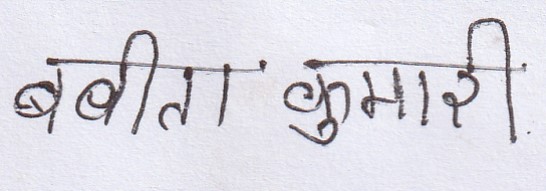 बबीता कुमारी